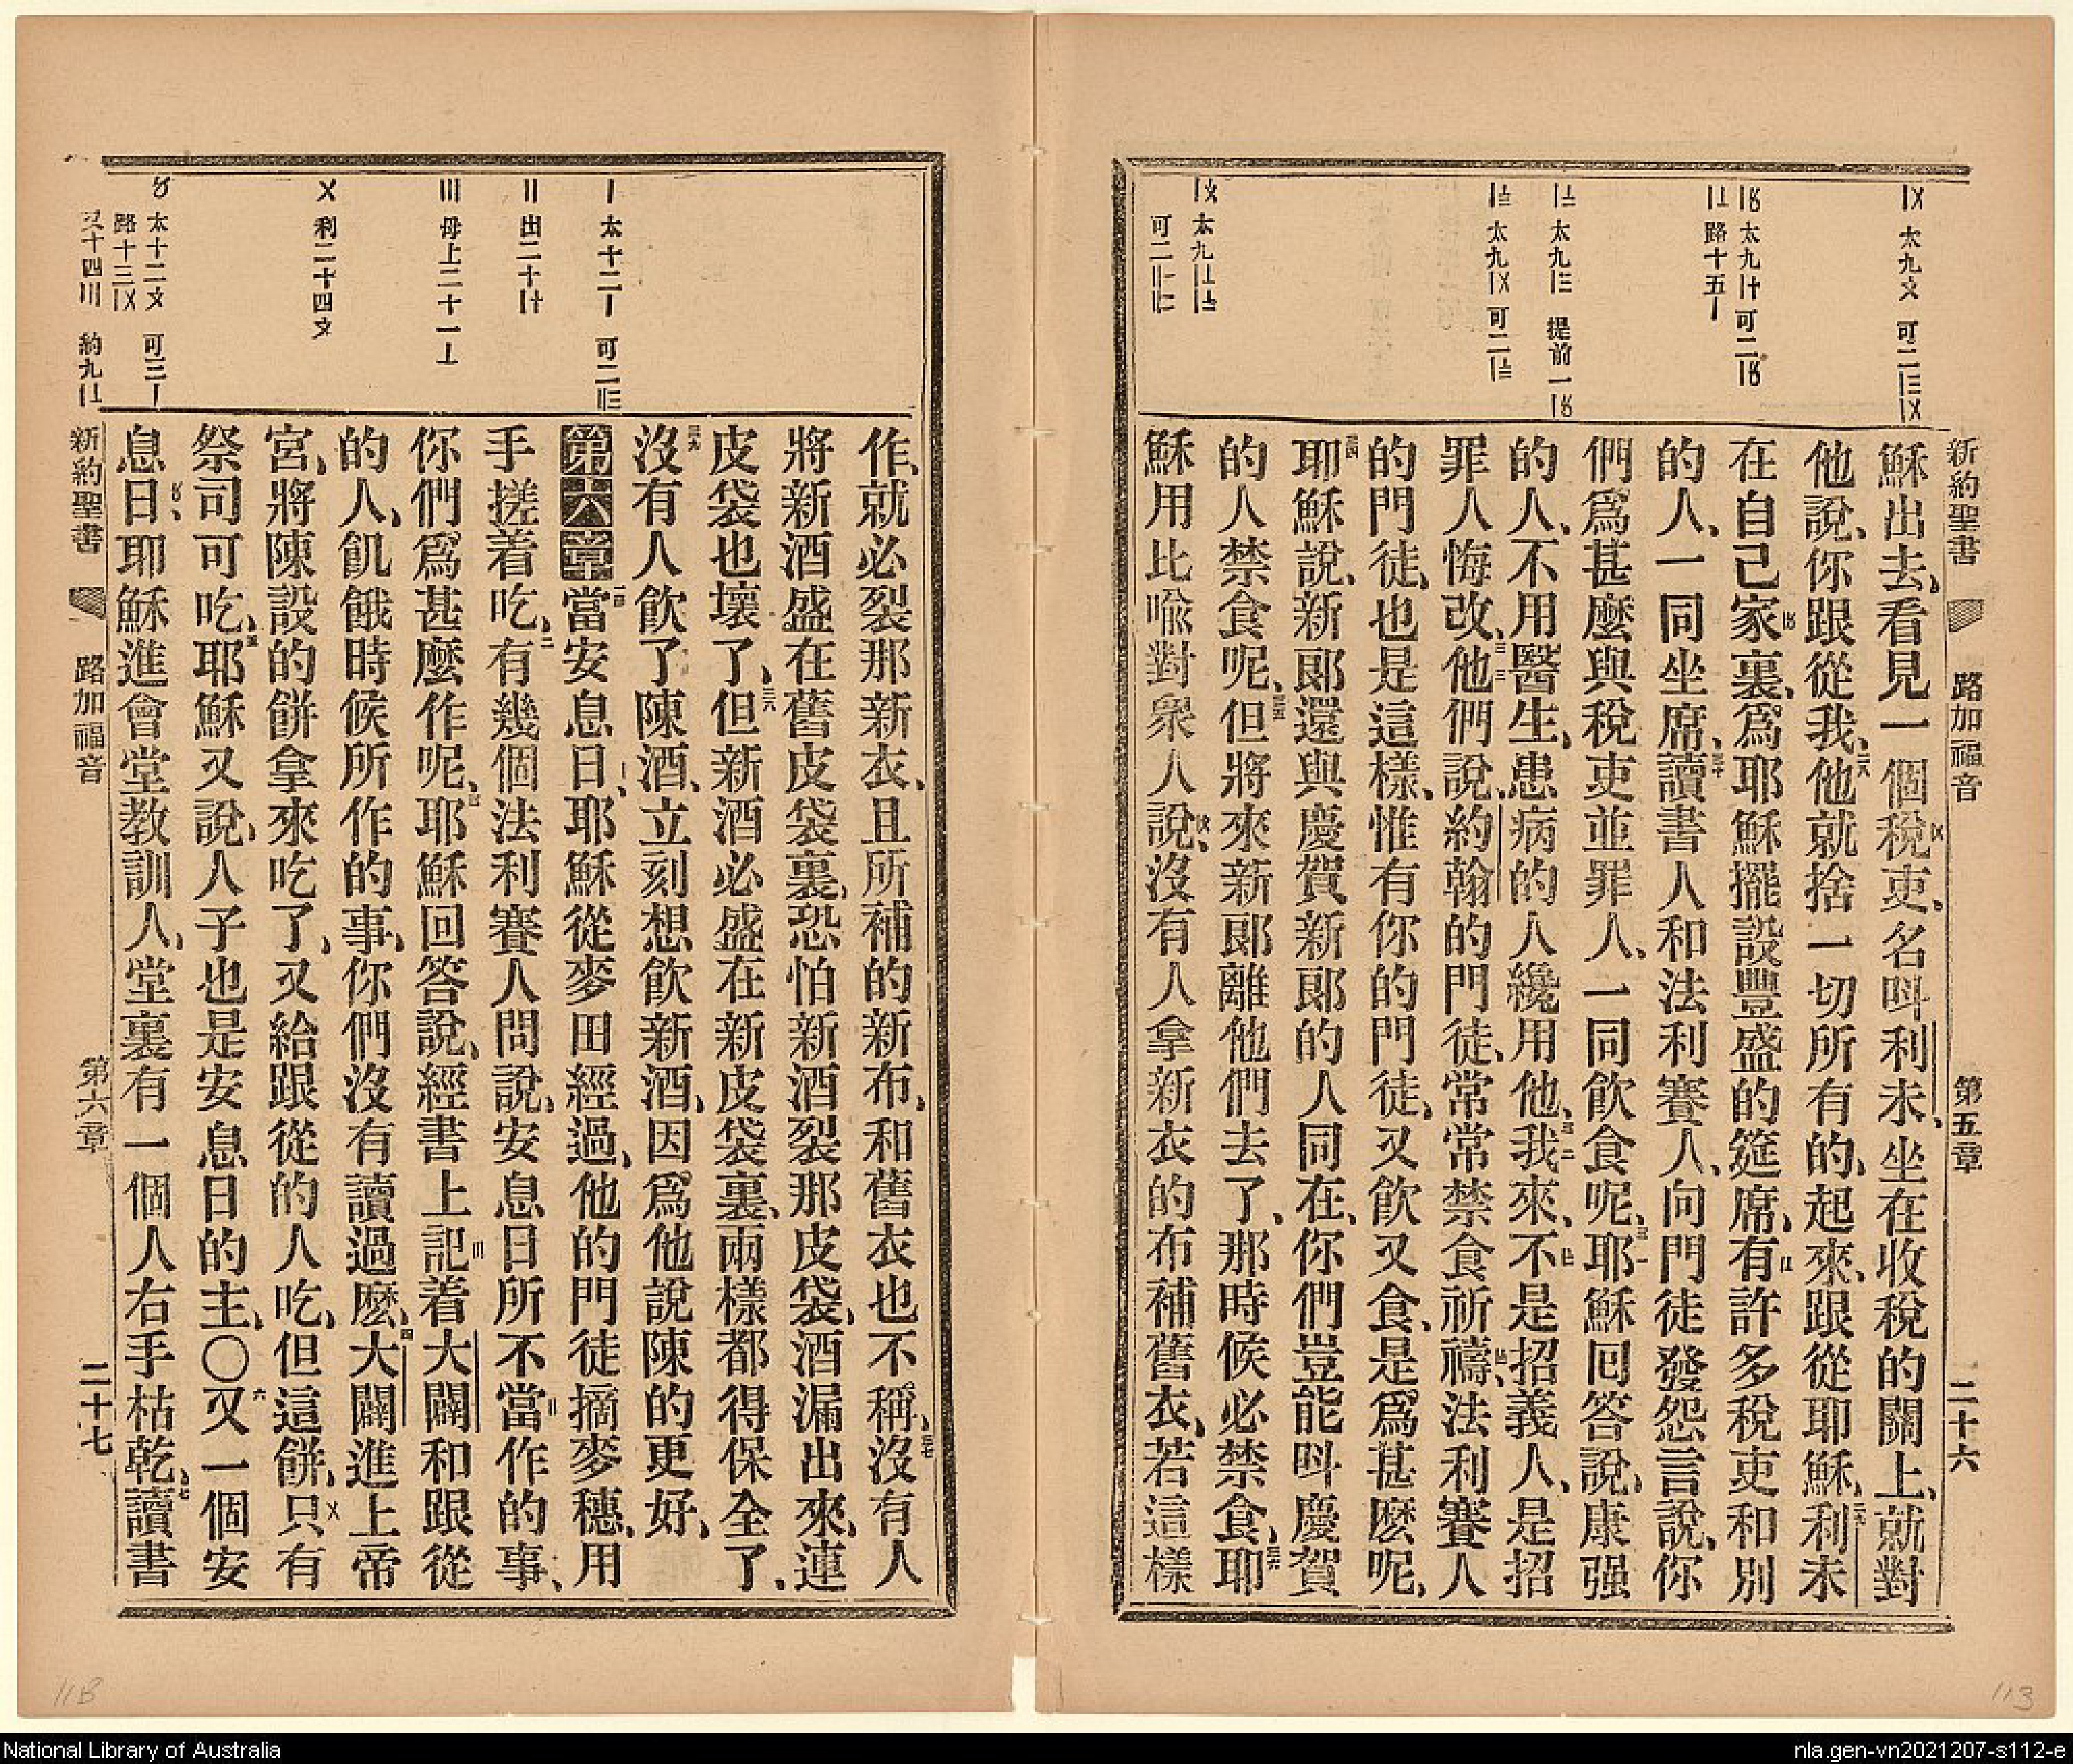 新約聖書 路加福音 第五章 二十六
穌出去、看見一個稅吏、名呌利未、坐在收稅的關上、就對
他說、你跟從我、他就捨一切所有的、起來、跟從耶穌、利未
在自己家裏、爲耶穌擺設豐盛的筵席、有許多稅吏和別
的人、一同坐席、讀書人和法利賽人、向門徒發怨言說、你
們爲甚麼與稅吏並罪人、一同飲食呢、耶穌囘答說、康强
的人、不用醫生、患病的人纔用他、我來、不是招義人、是招
罪人悔改、他們說、約翰的門徒、常常禁食祈禱、法利賽人
的門徒、也是這樣、惟有你的門徒、又飲又食、是爲甚麼呢、
耶穌說、新郞還與慶賀新郞的人同在、你們豈能呌慶賀
的人禁食呢、但將來新郞離他們去了、那時候必禁食、耶
穌用比喩對衆人說、沒有人拿新衣的布補舊衣、若這樣
作、就必裂那新衣、且所補的新布、和舊衣也不稱、沒有人
將新酒盛在舊皮袋裏、恐怕新酒裂那皮袋、酒漏出來、連
皮袋也壞了、但新酒必盛在新皮袋裏、兩樣都得保全了、
沒有人飲了陳酒、立刻想飲新酒、因爲他說陳的更好、
第六章當安息日、耶穌從麥田經過、他的門徒摘麥穗、用
手搓着吃、有幾個法利賽人問說、安息日所不當作的事、
你們爲甚麼作呢、耶穌回答說、經書上記着大闢和跟從
的人、飢餓時候所作的事、你們沒有讀過麽、大闢進上帝
宮、將陳設的餅拿來吃了、又給跟從的人吃、但這餅、只有
祭司可吃、耶穌又說、人子也是安息日的主、〇又一個安
息日、耶穌進會堂教訓人、堂裏有一個人右手枯乾、讀書
新約聖書 路加福音 第六章 二十七
113
118
National Library of Australia
nla.gen-vn2021207-s112-e